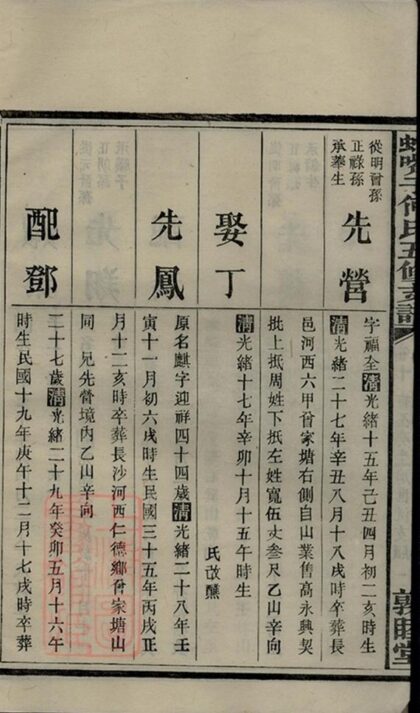 何氏五修支譜
敦睦堂
從明曾孫
正祿孫
承莘生
先營
字福全清光緒十五年己丑四月初二亥時生
清光緒二十七年辛丑八月十八戌時卒葬長
邑河西六甲曾家塘右側自山業售高永興契
批上抵周姓下抵左姓寬伍丈叁尺乙山辛向
娶丁
清光緒十七年辛卯十月十五午時生
氏改醮
先鳳
原名麒字迎祥四十四歲清光緒二十八年壬
寅十一月初六戌時生民國三十五年丙戌正
月十二亥時卒葬長沙河西仁德鄉曾家塘山
同兄先營境內乙山辛向
配鄧
二十七歲清光緒二十九年癸卯五月十六午
時生民國十九年庚午十二月十七戌時卒葬